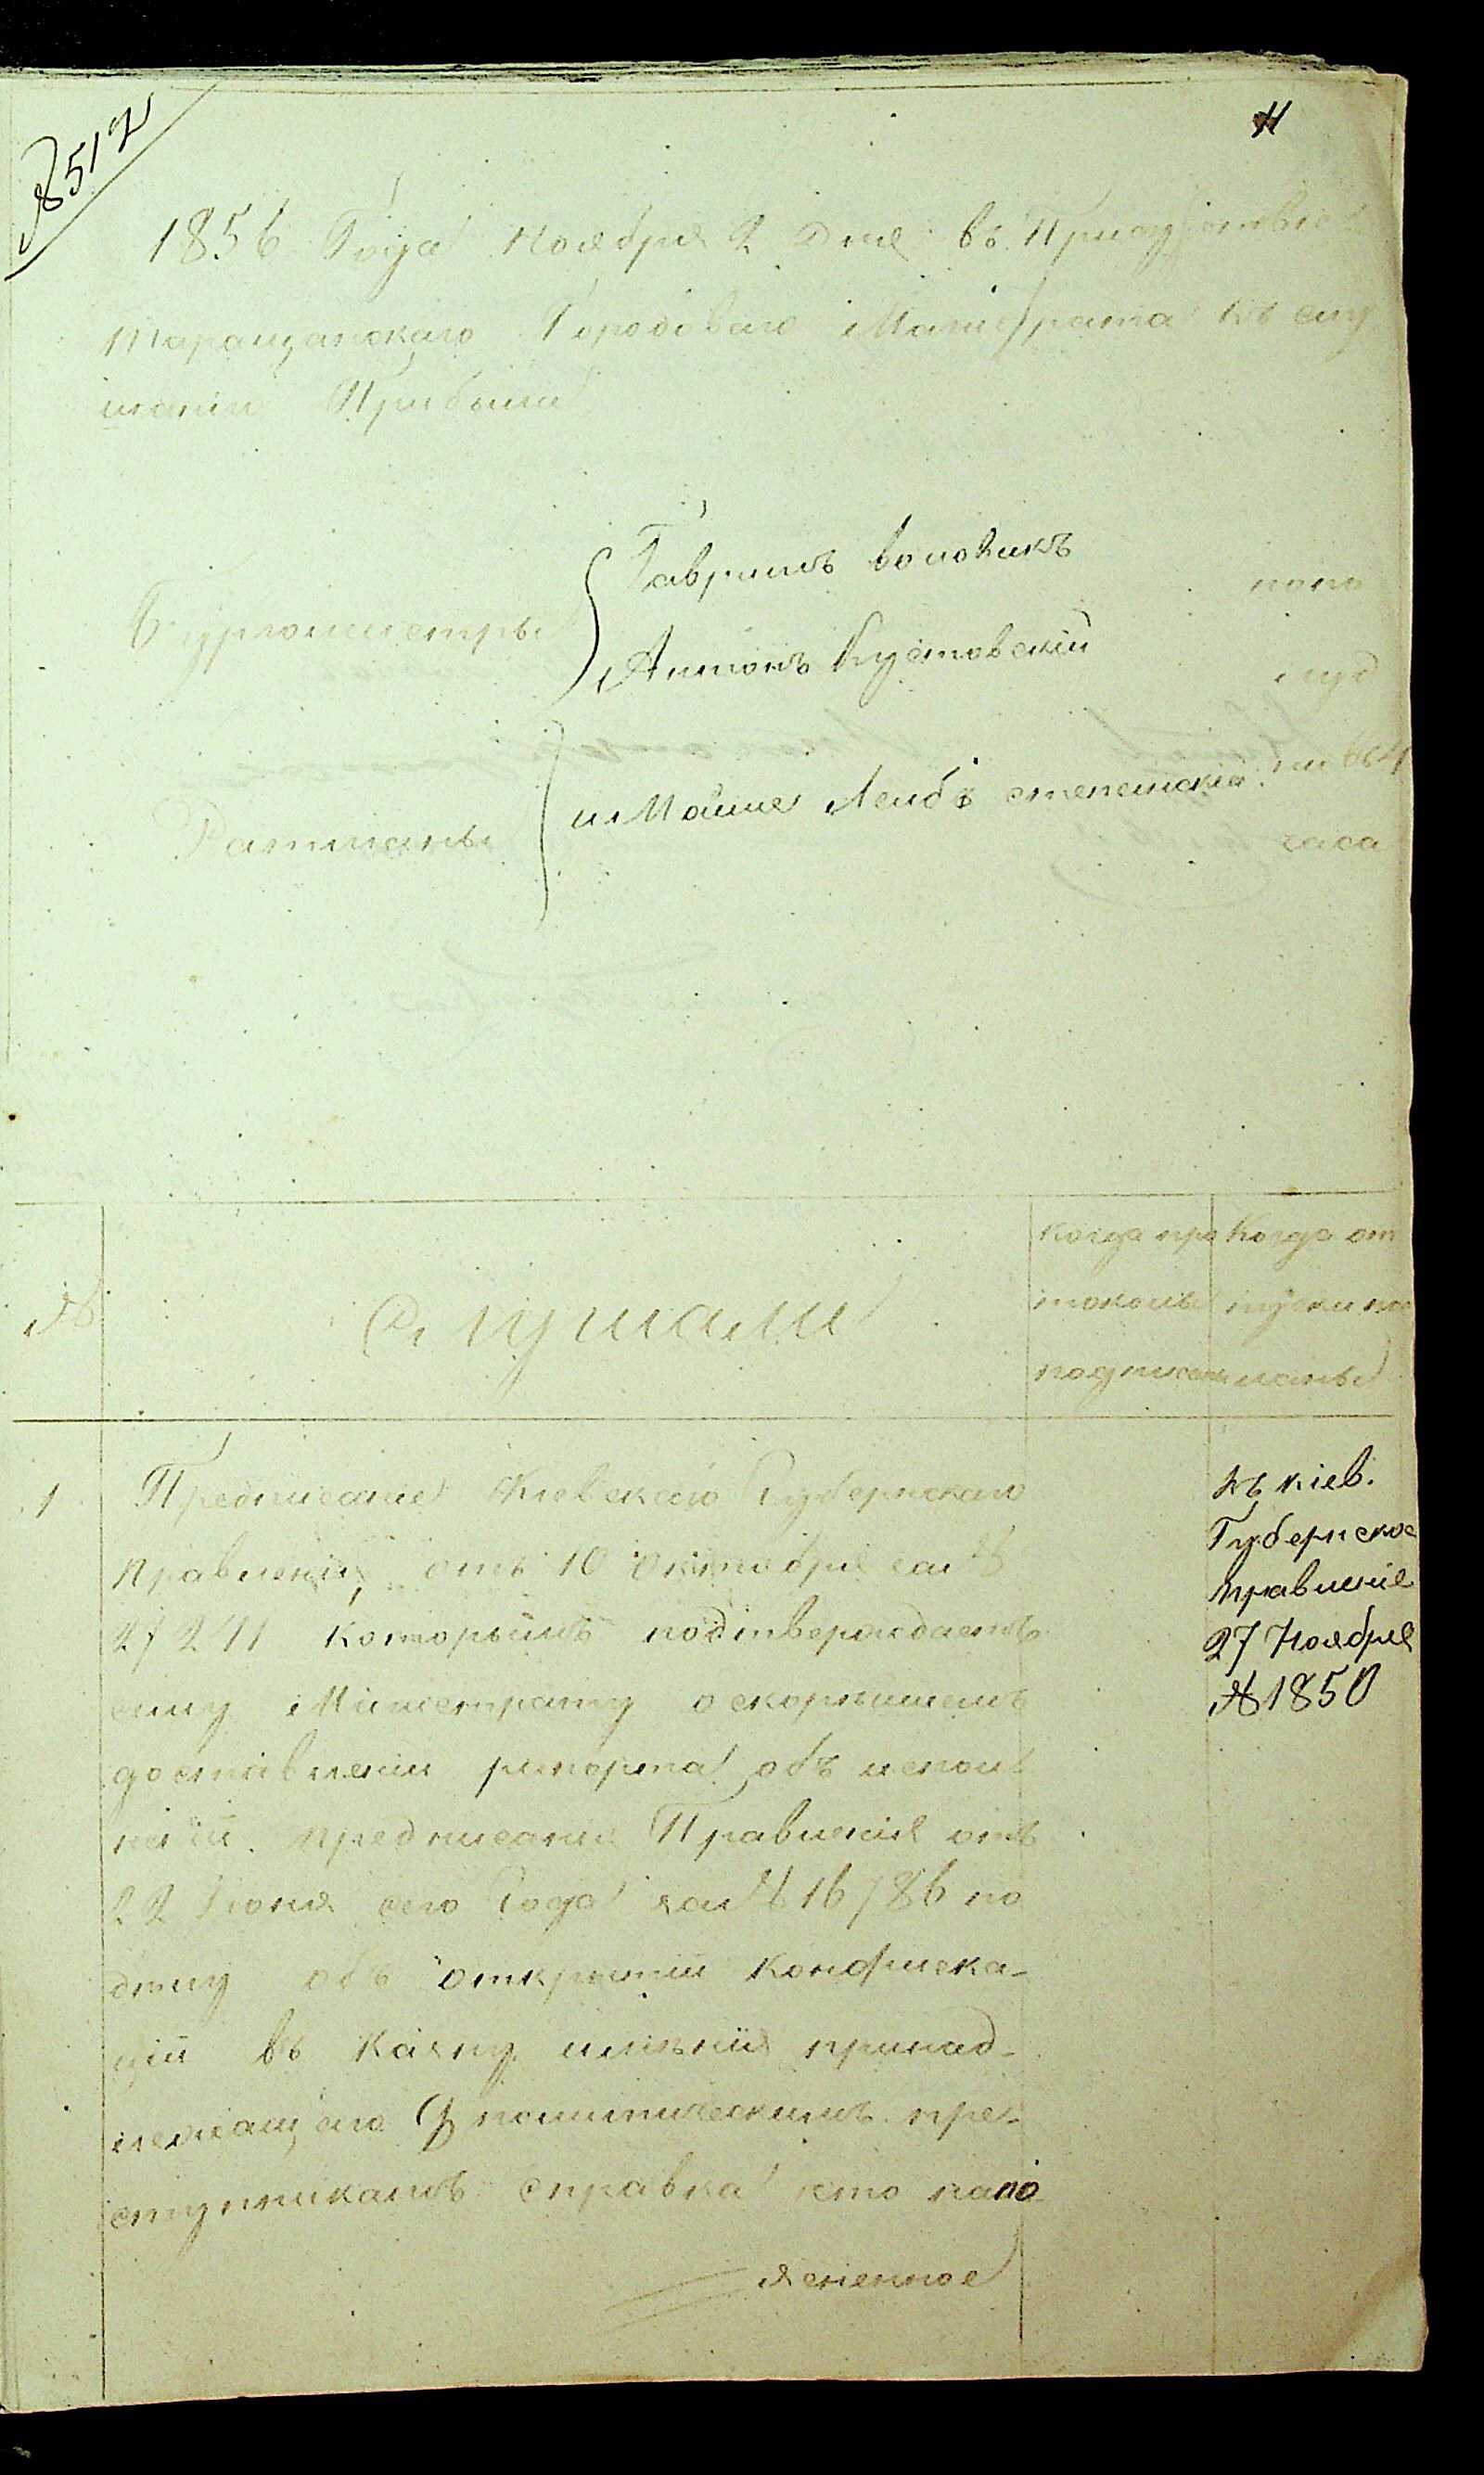 № 512
11
1856 Года Ноября 2 Дня въ Присутствіе
Таращанскаго Городоваго Магистрата къ слу
шанію Прибыли
Бургомистры
Гавріилъ воловикъ
Антонъ Кустовскій
попо
луд
Ратманы
и Мошие Лейбъ степенскій
ни въ 4
часа
№
Слушали
когда про
токолы
подписаны
Когда от
пуски по
сланы
1
Предписаніе Кіевскаго Губернскаго
правленія, отъ 10 октября за №
27211 которымъ подтверждаетъ
сему Магистрату о скорѣишемъ
доставленіи рапорта объ испол
неніи предписанія Правленія отъ
22 Іюня сего Года за № 16786 по
дѣлу объ открытіи конфиска-
ціи въ казну имѣнія принад-
лежащаго политическимъ пре-
ступникамъ справка что напо
ясненное
Въ кіев.
Губернское
правленіе
27 Ноября
№ 1850